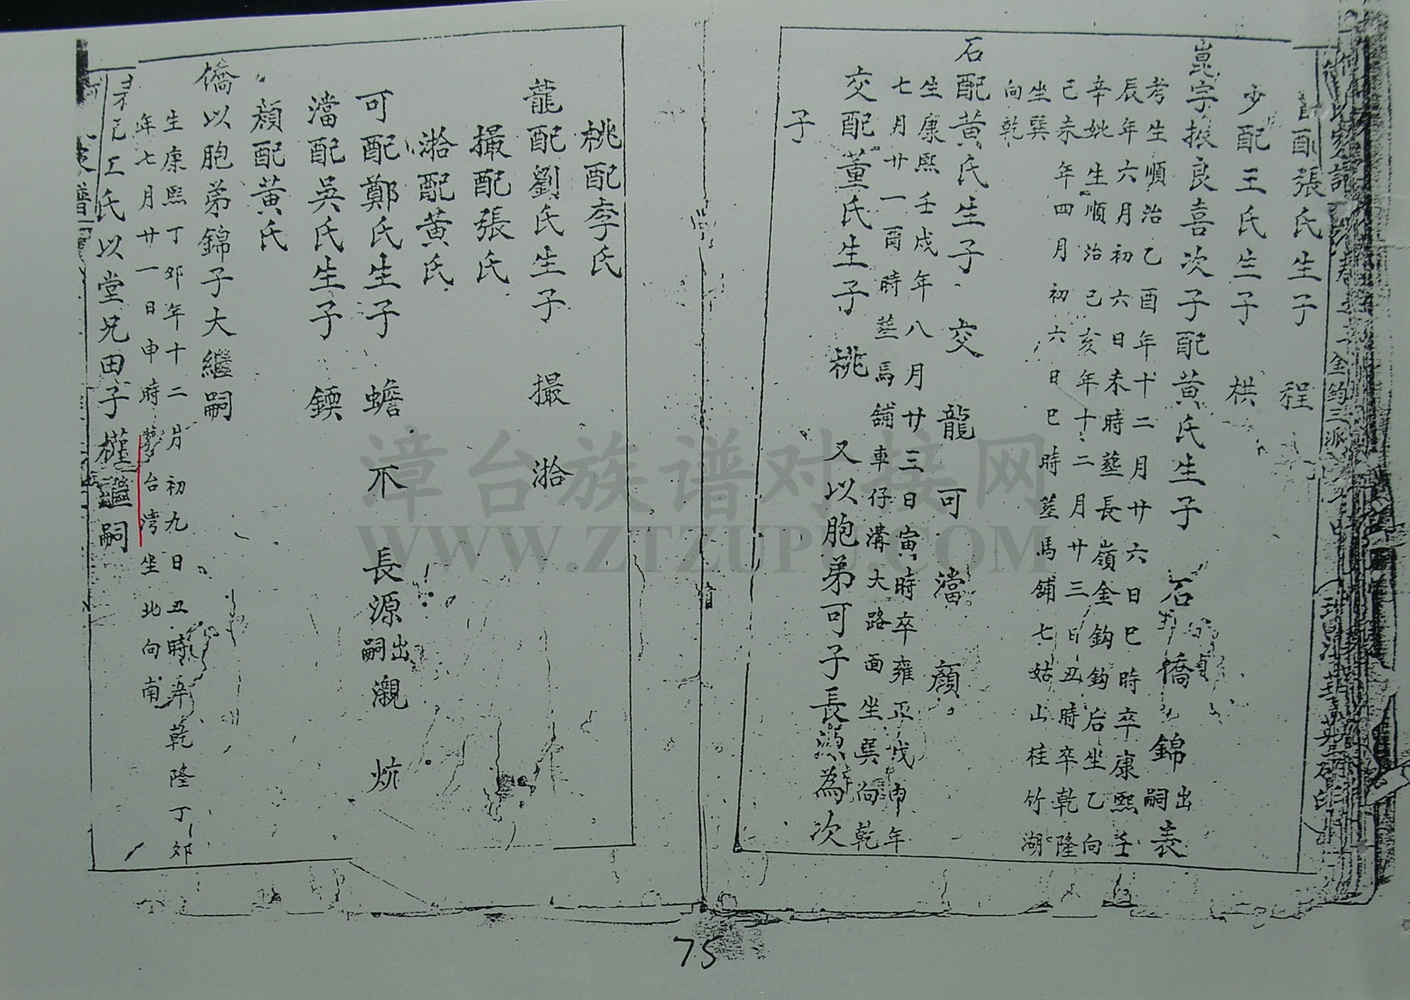 配張氏生子 程
少配王氏生子 栱
崑字振良喜次子配黃氏生子 石 僑 錦出嗣 表
考生順治乙酉年十二月廿六日巳時卒康熙壬
辰年六月初六日未時葬長嶺金鈎鈎后坐乙向
辛妣生順治己亥年十二月廿三日丑時卒乾隆
己未年四月初六日巳時葬馬鋪七姑山桂竹湖
坐巽
向乾
石配黃氏生子 交 龍 可 澢 顏
生康熙壬戌年八月廿三日寅時卒雍正戊申年
七月廿一酉時葬馬鋪車仔溝大路面坐巽向乾
交配董氏生子 桃 又以胞弟可子長為次
子
桃配李氏
龍配劉氏生子 撮 湁
撮配張氏
湁配黃氏
可配鄭氏生子 蟾 不 長 源出嗣 瀙 炕
澢配吳氏生子 鍈
顏配黃氏
僑以胞弟錦子大繼嗣
生康熙丁卯年十二月初九日丑時卒乾隆丁卯
年七月廿一日申時葬台湾坐北向南
氏以堂兄田子權繼嗣
金鈎三派
漳台族谱对接网
WWW.ZTZUPU.COM
75